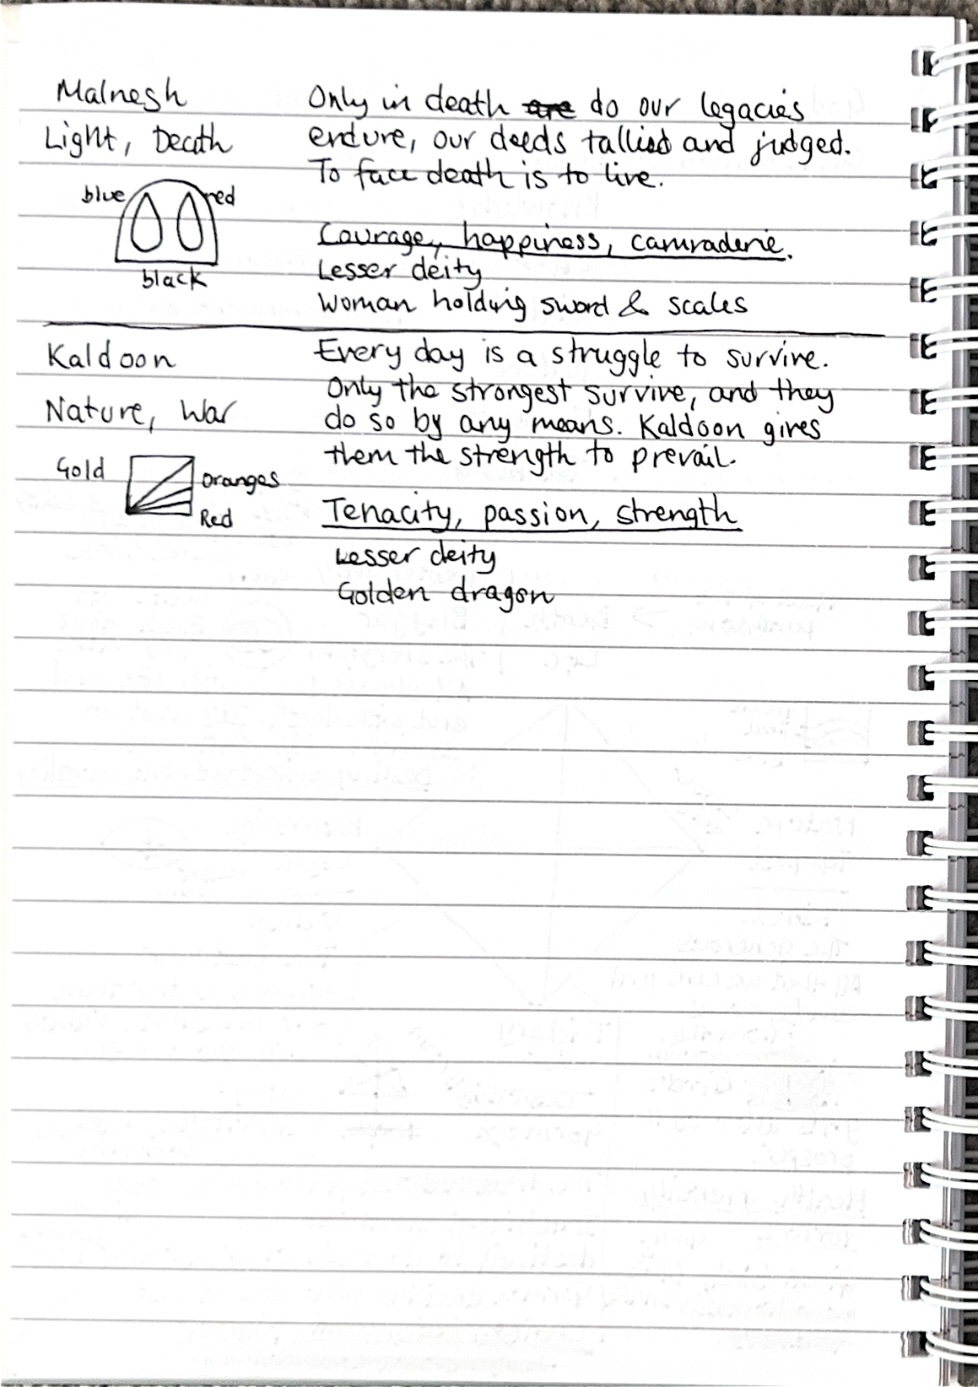 Malnesh
Light, Death
blue
red
black
Only in death are do our legacies
endure, our deeds tallied and judged.
To face death is to live.
Courage, happiness, camraderie.
Lesser deity
Woman holding sword & scales
Kaldoon
Nature, War
Gold
Oranges
Red
Every day is a struggle to survive.
Only the strongest survive, and they
do so by any means. Kaldoon gives
them the strength to prevail.
Tenacity, passion, strength
Lesser deity
Golden dragon